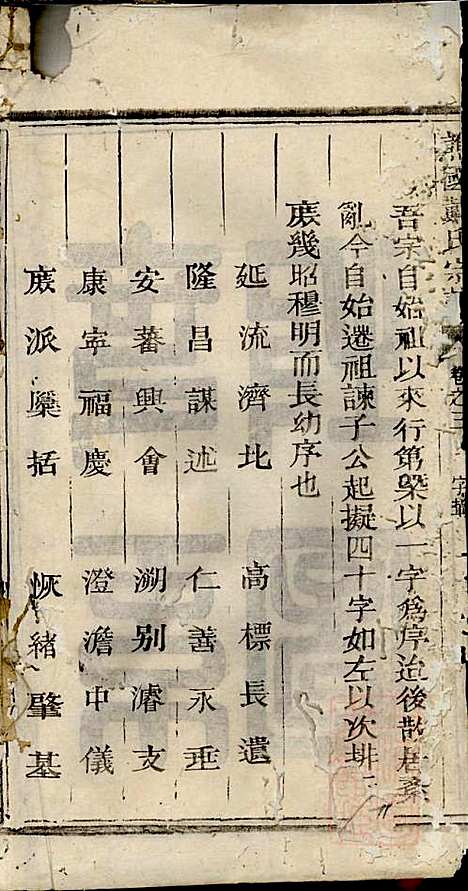 譙國戴氏宗 卷之三 字輩
吾宗自始祖以來行第槩以一字為序迨後散居
亂今自始遷祖諫子公起擬四十字如左以次排
庻幾昭穆明而長幼序也
延流濟北 高標長遺
隆昌謀述 仁善永垂
安蕃興會 溯別濬支
康寜福慶 澄澹中儀
庻派檃括 恢緒肇基